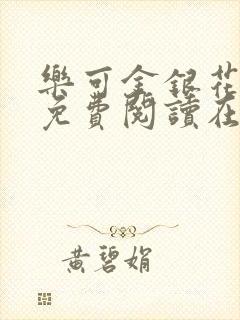 樂可金銀花
免費閱讀在
黃碧娟